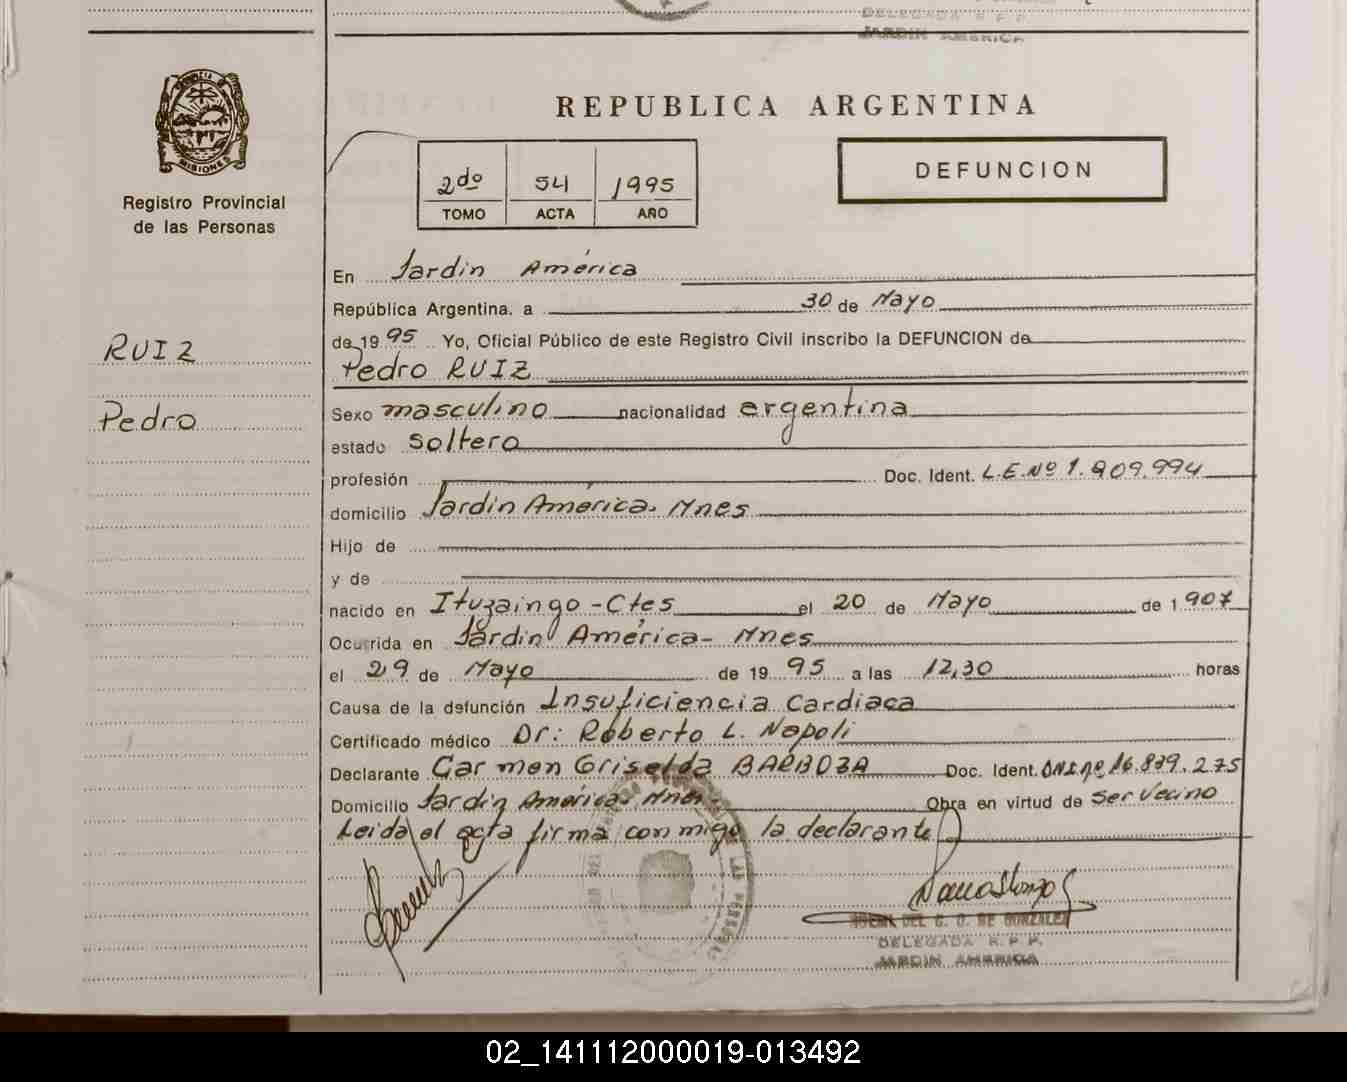 DELEGADA R. P. P.
JARDIN AMERICA
MISIONES
Registro Provincial
de las Personas
REPUBLICA ARGENTINA
2do 54 1995
TOMO ACTA AÑO
DEFUNCION
En Jardin América
República Argentina, a 30 de Mayo
de 19 95 Yo, Oficial Público de este Registro Civil inscribo la DEFUNCION de
RUIZ
Pedro RUIZ
Pedro
Sexo masculino nacionalidad argentina
estado soltero
profesión Doc. Ident. L.E.Nº 1.909.994
domicilio Jardin América. Mnes
Hijo de
y de
nacido en Ituzaingo - Ctes el 20 de Mayo de 1.907
Ocurrida en Jardin América - Mnes
el 29 de Mayo de 19 95 a las 12,30 horas
Causa de la defunción Insuficiencia Cardiaca
Certificado médico Dr: Roberto L. Napoli
Declarante Carmen Griselda BARBOZA Doc. Ident. DNI nº 16.829.275
Domicilio Jardin América. Mnes Obra en virtud de ser vecino
Leida el acta firma conmigo la declarante
DEL C. G. DE GONZALEZ
DELEGADA R. P. P.
JARDIN AMERICA
02_141112000019-013492